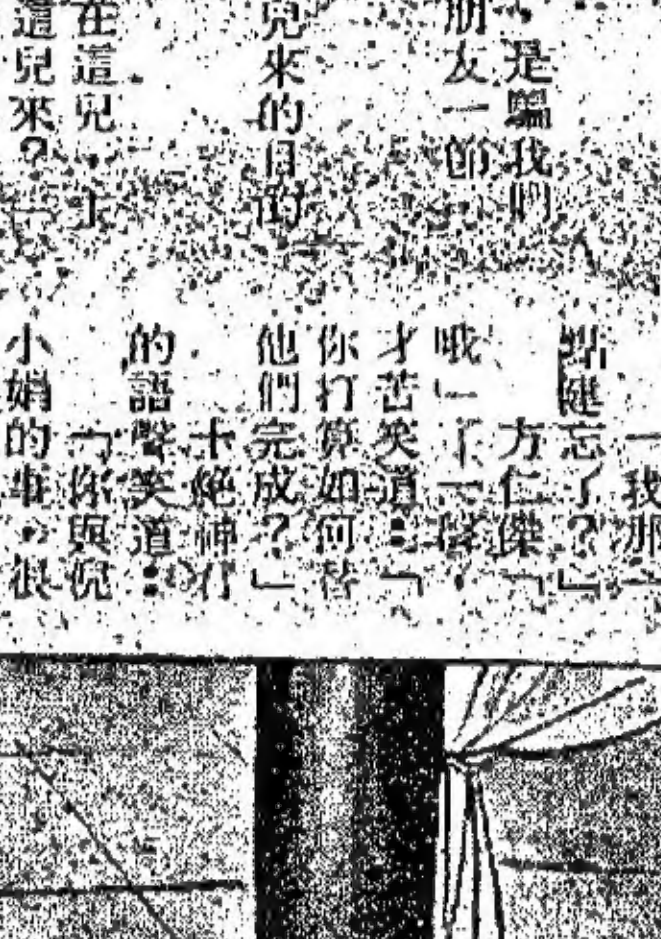 是騙我們
朋友一節
兒來的目的
在這兒，十
這兒來？」
「我那一
點健忘了？」
方仁傑「
哦」了一聲，
才苦笑道：「
你打算如何替
他們完成？」
十絕神
的語聲笑道：
「你與倪
小娟的事，很